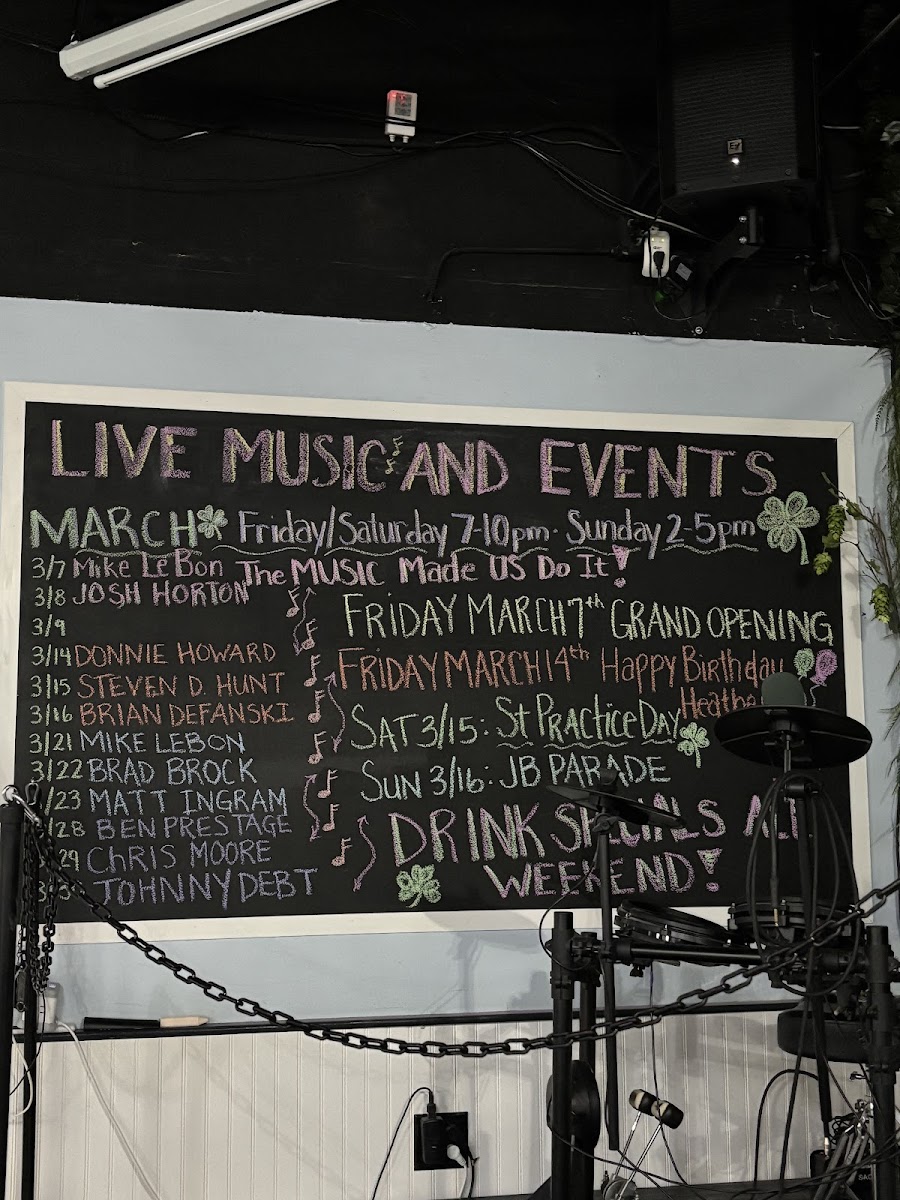 LIVE MUSIC AND EVENTS
MARCH Friday/Saturday 7-10pm · Sunday 2-5pm
3/7 Mike LeBon The MUSIC Made US Do It!
3/8 JOSH HORTON
3/9
3/14 DONNIE HOWARD
3/15 STEVEN D. HUNT
3/16 BRIAN DEFANSKI
3/21 MIKE LEBON
3/22 BRAD BROCK
/23 MATT INGRAM
/28 BEN PRESTAGE
29 CHRIS MOORE
JOHNNY DEBT
FRIDAY MARCH 7th GRAND OPENING
FRIDAY MARCH 14th Happy Birthday
SAT 3/15: St Practice Day
SUN 3/16: JB PARADE
DRINK SPECIALS ALL
WEEKEND!
EV